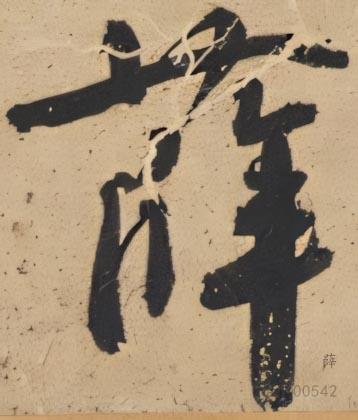 薛
薛
00542